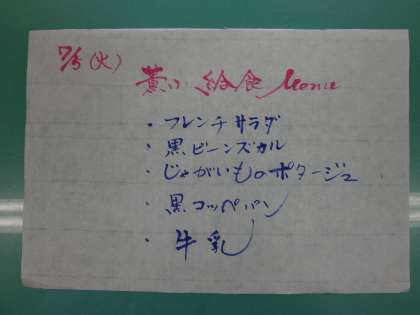 7/5(火)
黄い 給食 Menu
・フレンチサラダ
・黒ビーンズカル
・じゃがいものポタージュ
・黒コッペパン
・牛乳